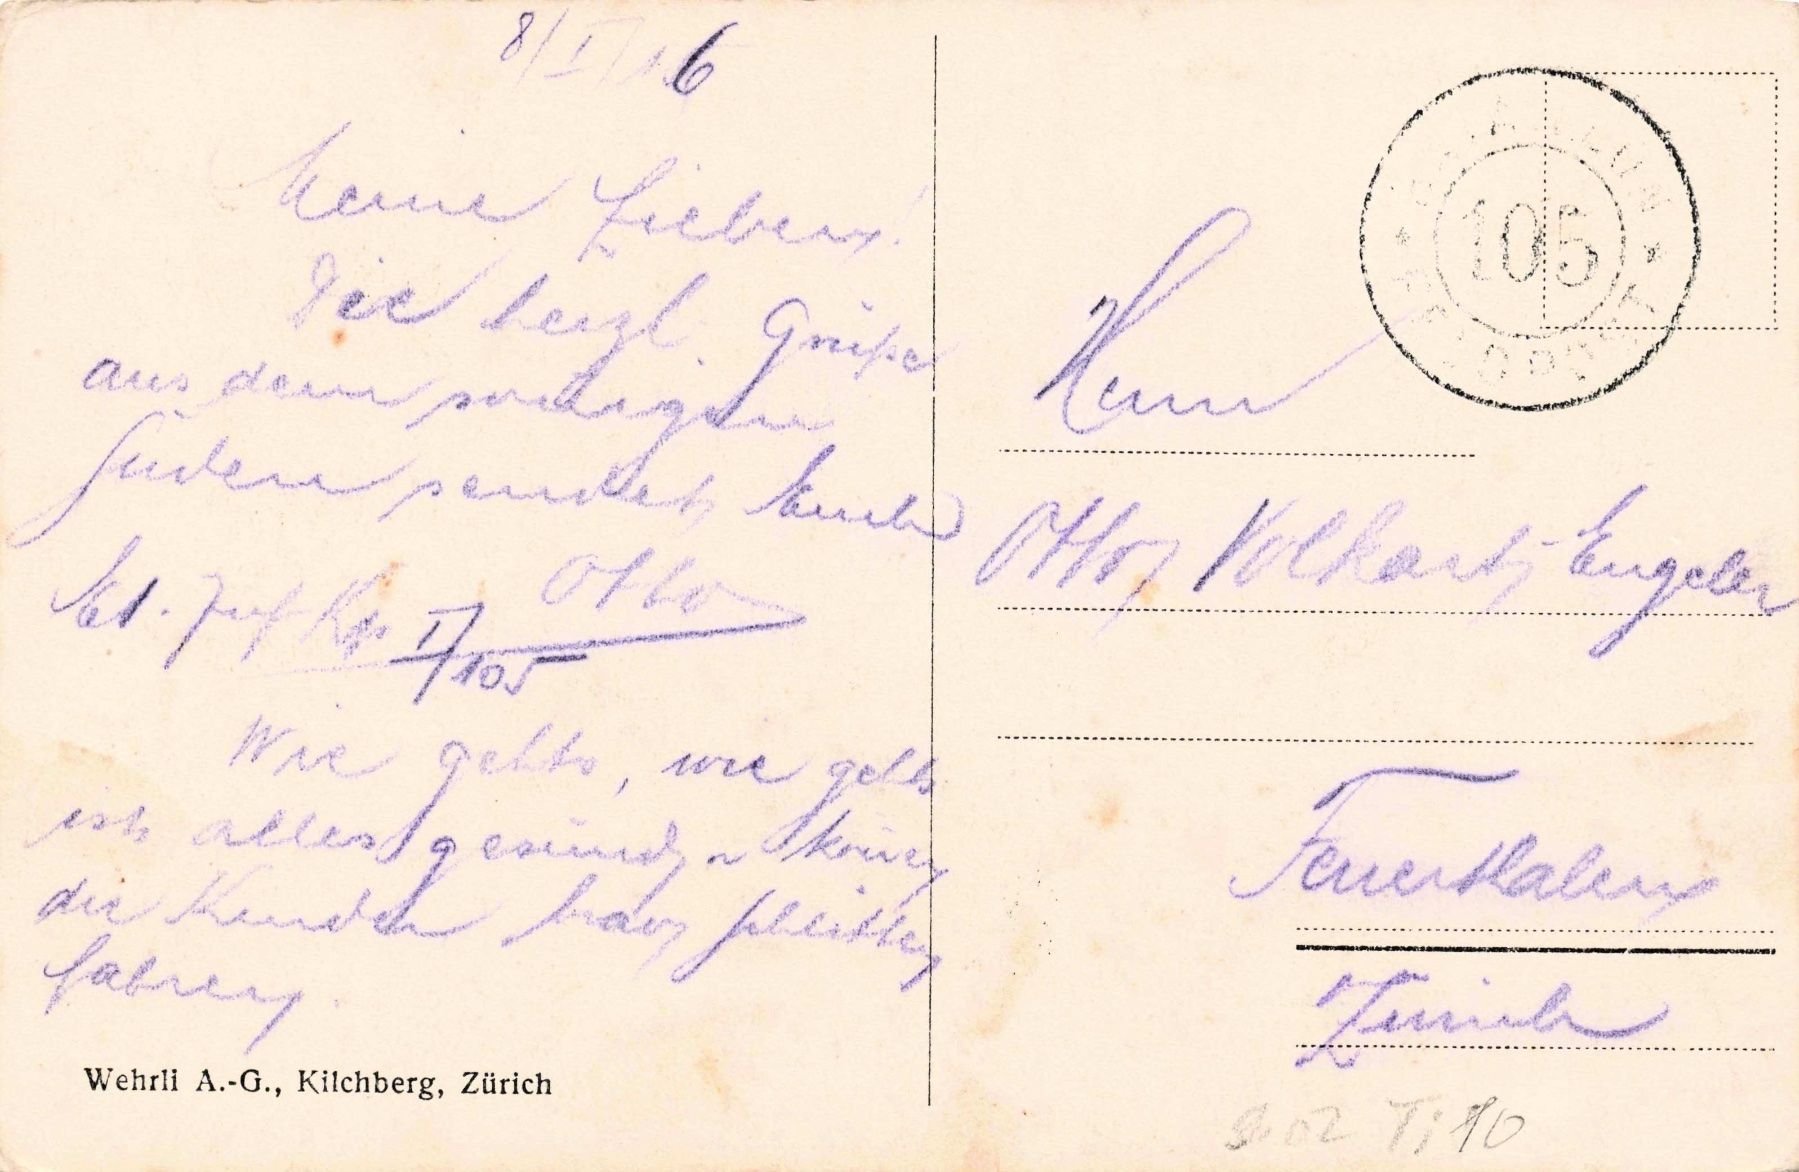 8/I/16
Meine Lieben!
Die herzl. Grüsse
aus dem sonnigen
Süden sendet Euch
Otto
Inf Kp II/105
Wie gehts, wie gehts
ist alles gesund, können
die Kinder brav schlitten
fahren.
Wehrli A.-G., Kilchberg, Zürich
BATAILLON
105
FELDPOST
Herrn
Otto Volkart-Engeler
Feuerthalen
Zürich